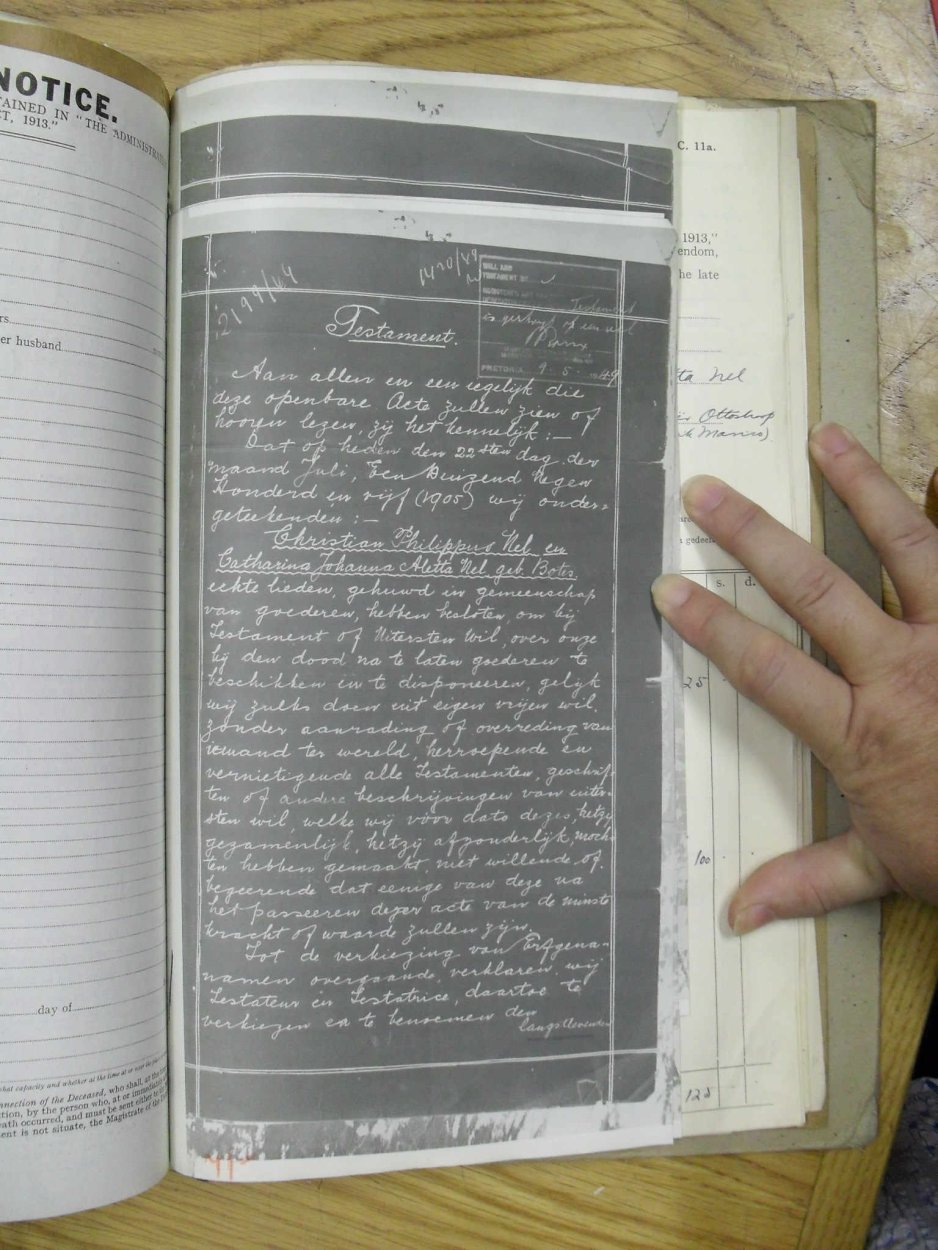 NOTICE.
TAINED IN "THE ADMINISTRA
CT, 1913."
rs
er husband
day of
what capacity and whether at the time at or near the
nnection of the Deceased, who shall, at the
tion, by the person who, at or immediately
eath occurred, and must be sent either to the
ent is not situate, the Magistrate of the
2199/64
1420/49
WILL AND
TESTAMENT
Testament
PRETORIA 9-5-1949
Testament.
Aan allen en een iegelijk die
deze openbare Acte zullen zien of
hooren lezen, zij het kennelijk :—
Dat op heden den 22sten dag der
maand Juli, Een Duizend Negen
Honderd en vijf (1905) wij onder-
geteekenden :—
Christian Philippus Nel en
Catharina Johanna Aletta Nel geb. Botes
echte lieden, gehuwd in gemeenschap
van goederen, hebben besloten, om bij
Testament of Uitersten Wil, over onze
bij den dood na te laten goederen te
beschikken en te disponeeren, gelijk
wij zulks doen uit eigen vrijen wil,
zonder aanrading of overreding van
iemand ter wereld, herroepende en
vernietigende alle Testamenten, geschrif-
ten of andere beschrijvingen van uiter-
sten wil, welke wij vóór dato dezes, hetzij
gezamenlijk, hetzij afzonderlijk, moch-
ten hebben gemaakt, niet willende of
begeerende dat eenige van deze na
het passeeren dezer acte van de minste
kracht of waarde zullen zijn.
Tot de verkiezing van Erfgena-
namen overgaande, verklaren wij
Testateur en Testatrice, daartoe te
verkiezen en te benoemen den
langstlevenden
C. 11a.
1913,"
endom,
he late
tta Nel
Ottoshoop
Marico)
s. d.
25
100
125